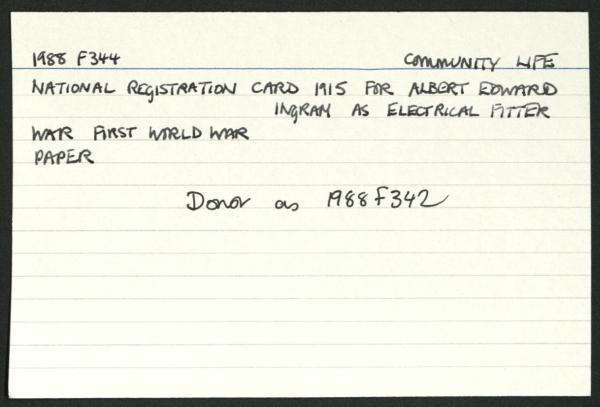 1988 F344 COMMUNITY LIFE
NATIONAL REGISTRATION CARD 1915 FOR ALBERT EDWARD
INGRAM AS ELECTRICAL FITTER
WAR FIRST WORLD WAR
PAPER
Donor as 1988F342